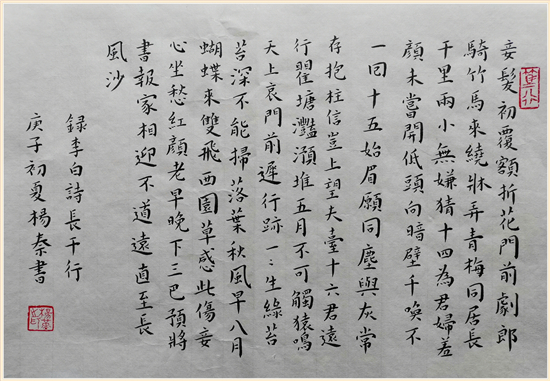 妾髮初覆額折花門前劇郎
騎竹馬來繞牀弄青梅同居長
干里兩小無嫌猜十四為君婦羞
顏未嘗開低頭向暗壁千喚不
一回十五始眉願同塵與灰常
存抱柱信豈上望夫臺十六君遠
行瞿塘灩澦堆五月不可觸猿鳴
天上哀門前遲行跡一〻生綠苔
苔深不能掃落葉秋風早八月
蝴蝶來雙飛西園草感此傷妾
心坐愁紅顏老早晚下三巴預將
書報家相迎不道遠直至長
風沙
錄李白詩長干行
庚子初夏楊秦書